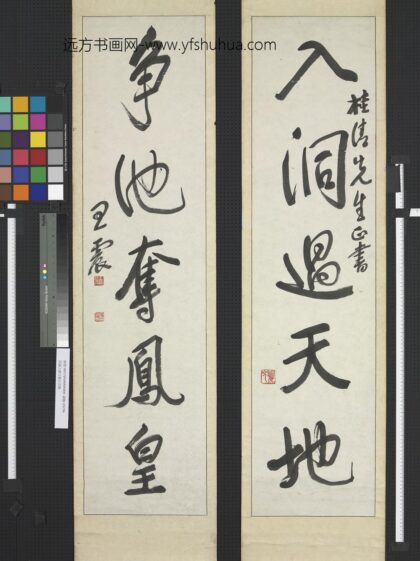 远方书画网-www.yfshuhua.com
入洞過天地
桂清先生正書
争池奪鳳皇
王震